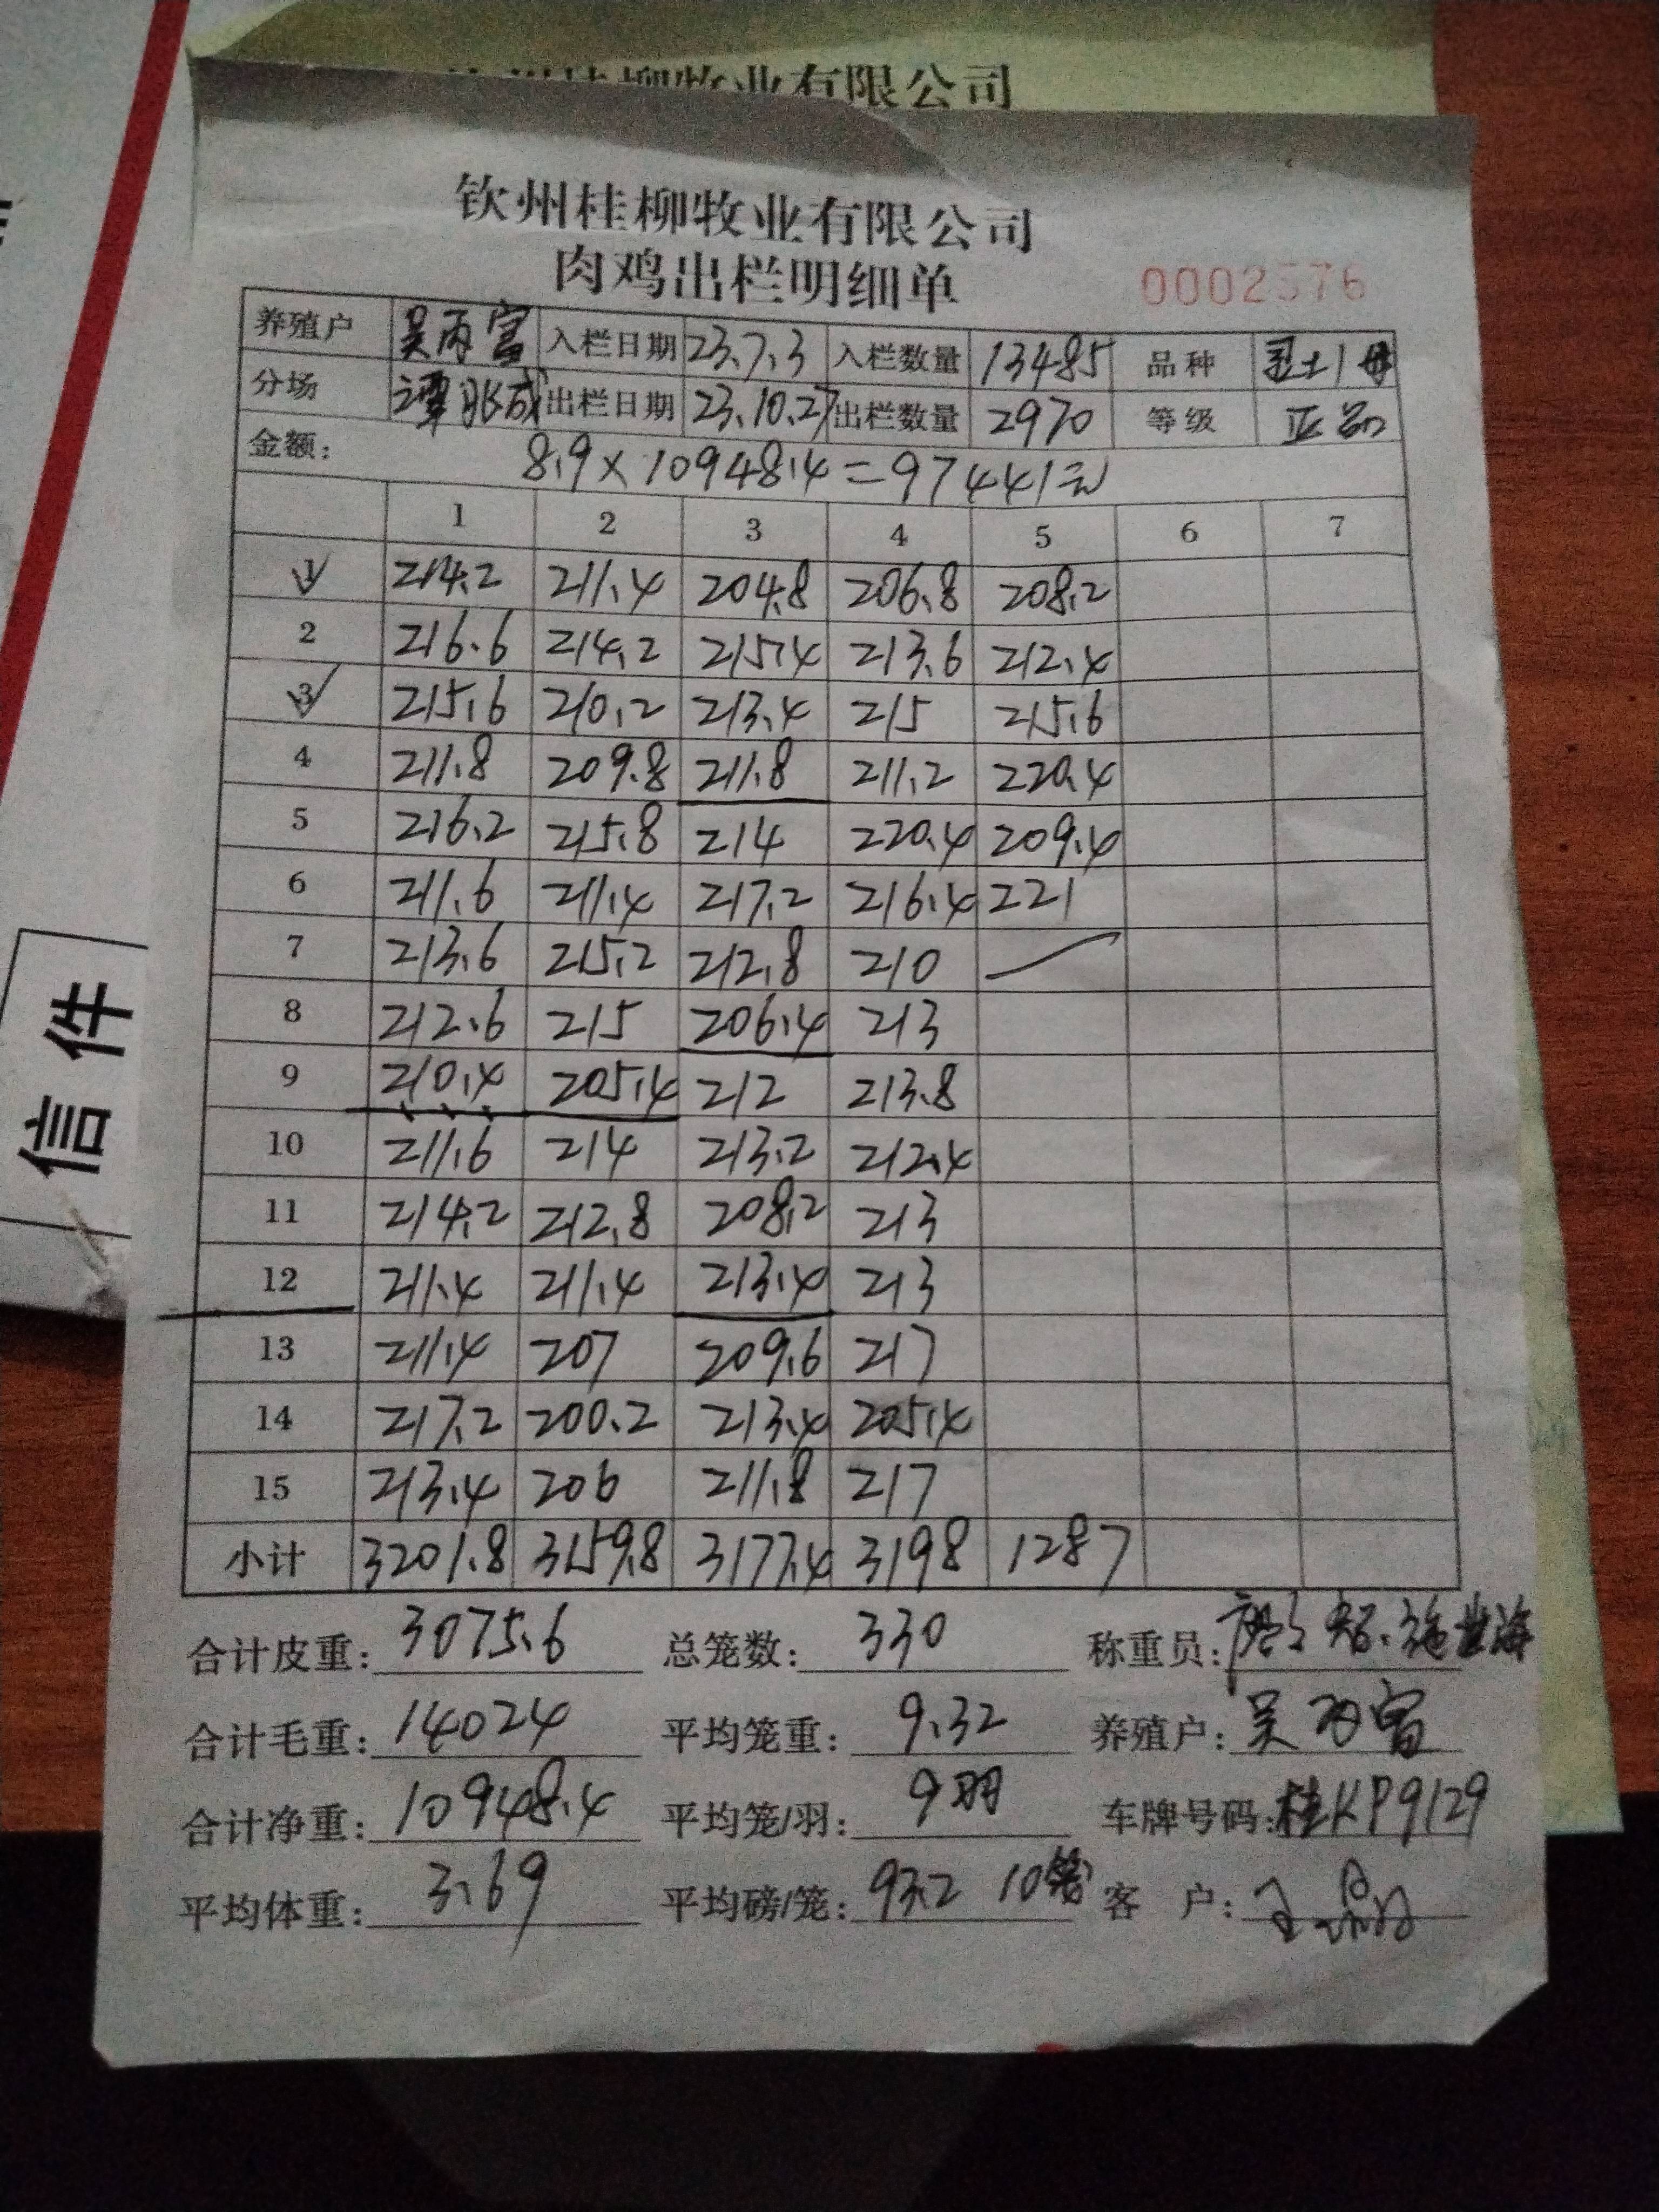 桂柳牧业有限公司
钦州桂柳牧业有限公司
肉鸡出栏明细单
养殖户 吴丙富 入栏日期 23.7.3 入栏数量 13485 品种 土1母
分场 谭胀成 出栏日期 23.10.27 出栏数量 2970 等级 正品
金额: 8.9×10948.4=97441元
1 2 3 4 5 6 7
1 214.2 211.4 204.8 206.8 208.2
2 216.6 214.2 215.4 213.6 212.4
3 215.6 210.2 213.4 215 215.6
4 211.8 209.8 211.8 211.2 220.4
5 216.2 215.8 214 220.4 209.4
6 211.6 211.4 217.2 216.4 221
7 213.6 215.2 212.8 210
8 212.6 215 206.4 213
9 210.4 205.4 212 213.8
10 211.6 214 213.2 212.4
11 214.2 212.8 208.2 213
12 211.4 211.4 213.4 213
13 211.4 207 209.6 217
14 217.2 200.2 213.4 205.4
15 213.4 206 211.8 217
小计 3201.8 3159.8 3177.4 3198 1287
合计皮重: 3075.6 总笼数: 330 称重员:
合计毛重: 14024 平均笼重: 9.32 养殖户: 吴丙富
合计净重: 10948.4 平均笼/羽: 9羽 车牌号码: 桂KP9129
平均体重: 3.69 平均磅/笼: 93.2 10笼 客 户:
信件